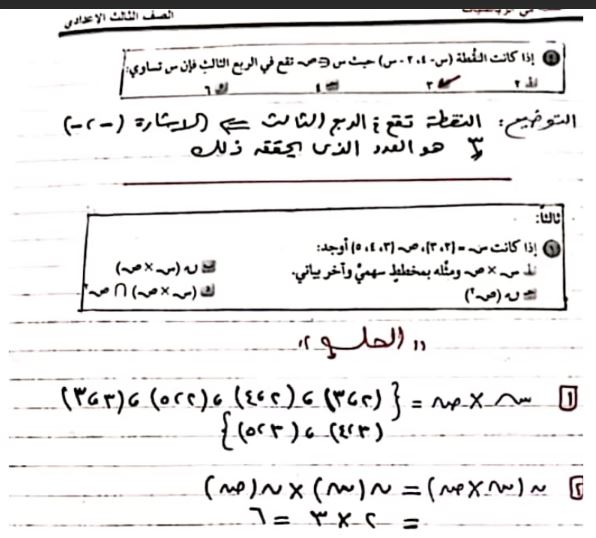 في الرياضيات
الصف الثالث الإعدادى
إذا كانت النقطة (س - ٤ ، ٢ - س) حيث س ∈ صـ تقع في الربع الثالث فإن س تساوي:
أ ٢ ب ٣ جـ ٤ د ٦
التوضيح: النقطة تقع في الربع الثالث ⇐ الإشارة (- ، -)
٣ هو العدد الذى يحقق ذلك
ثالثاً:
١ إذا كانت سـ = {٢ ، ٣}، صـ {٣ ، ٤ ، ٥} أوجد:
أ سـ × صـ ومثله بمخطط سهمي وآخر بياني.
ب ن (سـ × صـ)
جـ ن (صـ٢)
د (سـ × صـ) ∩ صـ٢
" الحلــ "
١ سـ × صـ = { (٢ ، ٣) ، (٢ ، ٤) ، (٢ ، ٥) ، (٣ ، ٣) ،
(٣ ، ٤) ، (٣ ، ٥) }
٢ ن (سـ × صـ) = ن (سـ) × ن (صـ)
= ٢ × ٣ = ٦